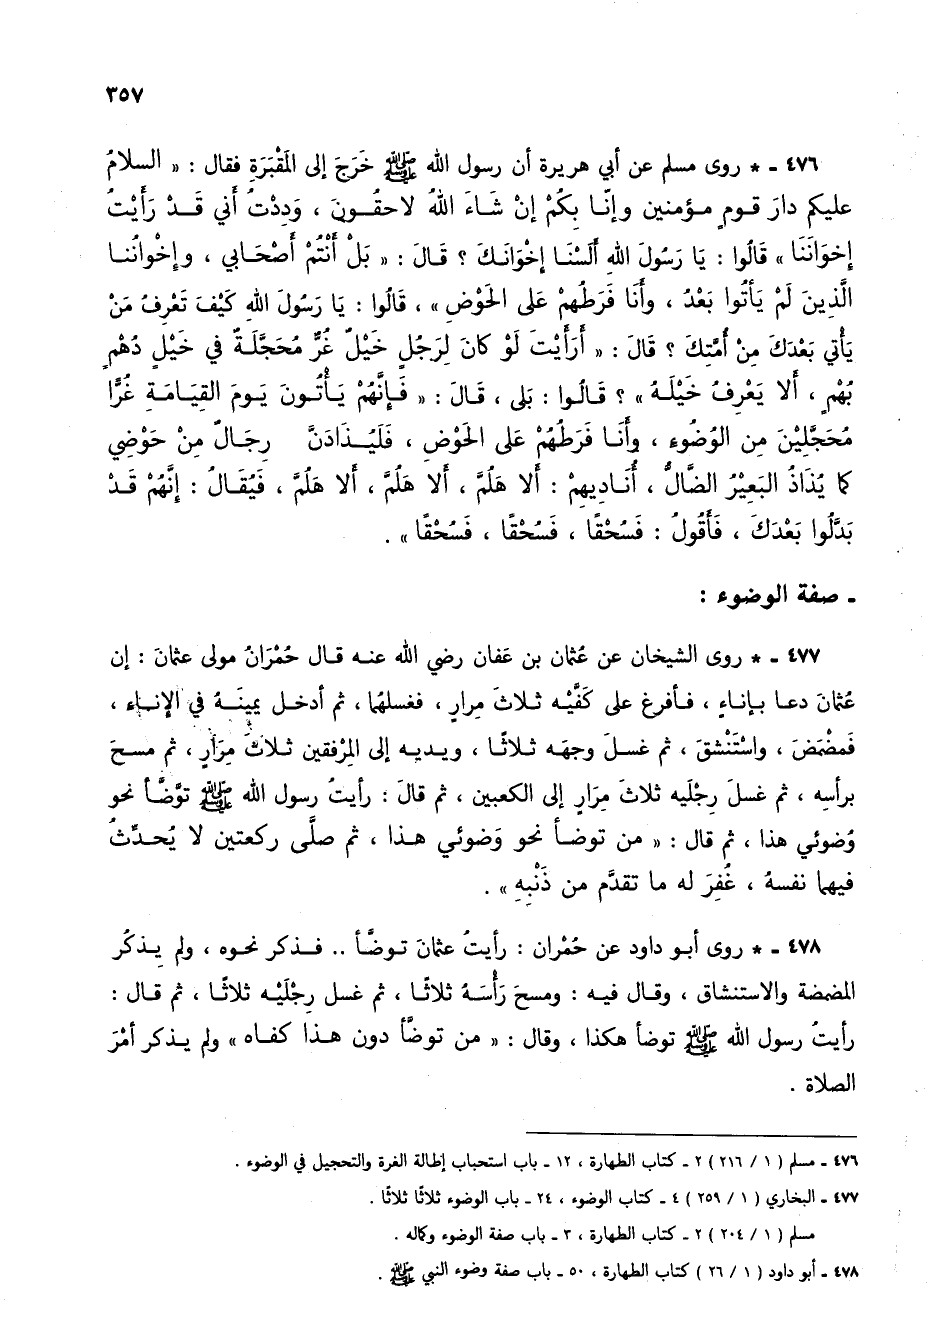 ٣٥٧
٤٧٦ ـ * روى مسلم عن أبي هريرة أن رسول الله ﷺ خَرَجَ إلى المَقْبَرَةِ فقال : « السلامُ
عليكم دارَ قومٍ مؤمنين وإنّا بِكُمْ إنْ شَاءَ اللهُ لاحقُونَ ، وَدِدْتُ أني قَدْ رَأَيْتُ
إخوَانَنَا » قَالُوا : يَا رَسُولَ اللهِ أَلَسْنَا إخْوَانَكَ ؟ قَالَ : « بَلْ أَنْتُمْ أصْحَابي ، وإخْوانُنا
الَّذينَ لَمْ يَأتُوا بَعْدُ ، وأَنَا فَرَطُهُمْ عَلى الحَوْضِ » ، قَالُوا : يَا رَسُولَ اللهِ كَيْفَ تَعْرِفُ مَنْ
يَأتي بَعْدَكَ مِنْ أُمَّتِكَ ؟ قَالَ : « أَرَأَيْتَ لَوْ كَانَ لِرَجُلٍ خَيْلٌ غُرٌّ مُحَجَّلَةٌ في خَيْلٍ دُهْمٍ
بُهْمٍ ، أَلا يَعْرِفُ خَيْلَهُ » ؟ قَالُوا : بَلى ، قَالَ : « فَإنَّهُمْ يَأْتُونَ يَومَ القِيَامَةِ غُرًّا
مُحَجَّلِيْنَ مِنَ الوُضُوءِ ، وأَنَا فَرَطُهُمْ عَلى الحَوْضِ ، فَلَيُذَادَنَّ رِجَالٌ مِنْ حَوْضِي
كما يُذَاذُ البَعيْرُ الضَّالُّ ، أُنَاديهِمْ : أَلا هَلُمَّ ، ألا هَلُمَّ ، ألا هَلُمَّ ، فَيُقَالُ : إنَّهُمْ قَدْ
بَدَّلُوا بَعْدَكَ ، فَأَقُولُ : فَسُحْقًا ، فَسُحْقًا ، فَسُحْقًا » .
ـ صفة الوضوء :
٤٧٧ ـ * روى الشيخان عن عُثمان بن عَفان رضي الله عنه قال حُمْرَانُ مولى عثمانَ : إن
عُثمَانَ دعا بإناءٍ ، فأفرغ على كَفَّيْه ثلاثَ مِرارٍ ، فغسلهُما ، ثم أدخل يمينَهُ في الإناء ،
فَمضْمَضَ ، واسْتَنْشقَ ، ثم غسلَ وجهَه ثلاثًا ، ويديه إلى المِرْفقين ثلاثَ مِرَارٍ ، ثم مسحَ
برأسِه ، ثم غسلَ رِجْلَيه ثلاثَ مِرَارٍ إلى الكعبين ، ثم قالَ : رأيتُ رسول الله ﷺ توَّضأ نحو
وُضوئي هذا ، ثم قال : « من توضأ نحو وَضوئي هذا ، ثم صلَّى ركعتين لا يُحدِّثُ
فيهما نفسهُ ، غُفِرَ له ما تقدَّم من ذَنْبِهِ » .
٤٧٨ ـ * روى أبو داود عن حُمْران : رأيتُ عثمانَ توضَّأ .. فذكر نحوه ، ولم يذكُر
المضمضة والاستنشاق ، وقال فيه : ومسحَ رَأْسَهُ ثلاثًا ، ثم غسل رِجلَيْه ثلاثًا ، ثم قال :
رأيتُ رسول الله ﷺ توضأ هكذا ، وقال : « من توضَّأ دون هذا كفاه » ولم يذكر أمْرَ
الصلاة .
٤٧٦ ـ مسلم ( ١ / ٢١٦ ) ٢ ـ كتاب الطهارة ، ١٢ ـ باب استحباب إطالة الغرة والتحجيل في الوضوء .
٤٧٧ ـ البخاري ( ١ / ٢٥٩ ) ٤ ـ كتاب الوضوء ، ٢٤ ـ باب الوضوء ثلاثًا ثلاثًا .
مسلم ( ١ / ٢٠٤ ) ٢ ـ كتاب الطهارة ، ٣ ـ باب صفة الوضوء وكماله .
٤٧٨ ـ أبو داود ( ١ / ٢٦ ) كتاب الطهارة ، ٥٠ ـ باب صفة وضوء النبي ﷺ .